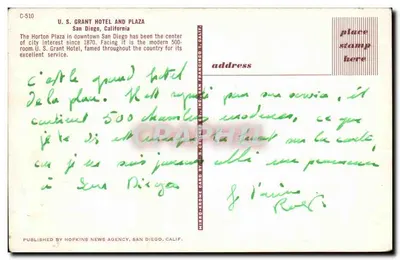 C-510
U. S. GRANT HOTEL AND PLAZA
San Diego, California
The Horton Plaza in downtown San Diego has been the center
of city interest since 1870. Facing it is the modern 500-
room U. S. Grant Hotel, famed throughout the country for its
excellent service.
place
stamp
here
address
c'est le grand hotel
de la place. Il est réputé pour son service, il
contient 500 chambres modernes, ce que
je te dis est marqué sur la carte,
car je ne suis jamais allé
à San Diego
Je t'aime
PUBLISHED BY HOPKINS NEWS AGENCY, SAN DIEGO, CALIF.